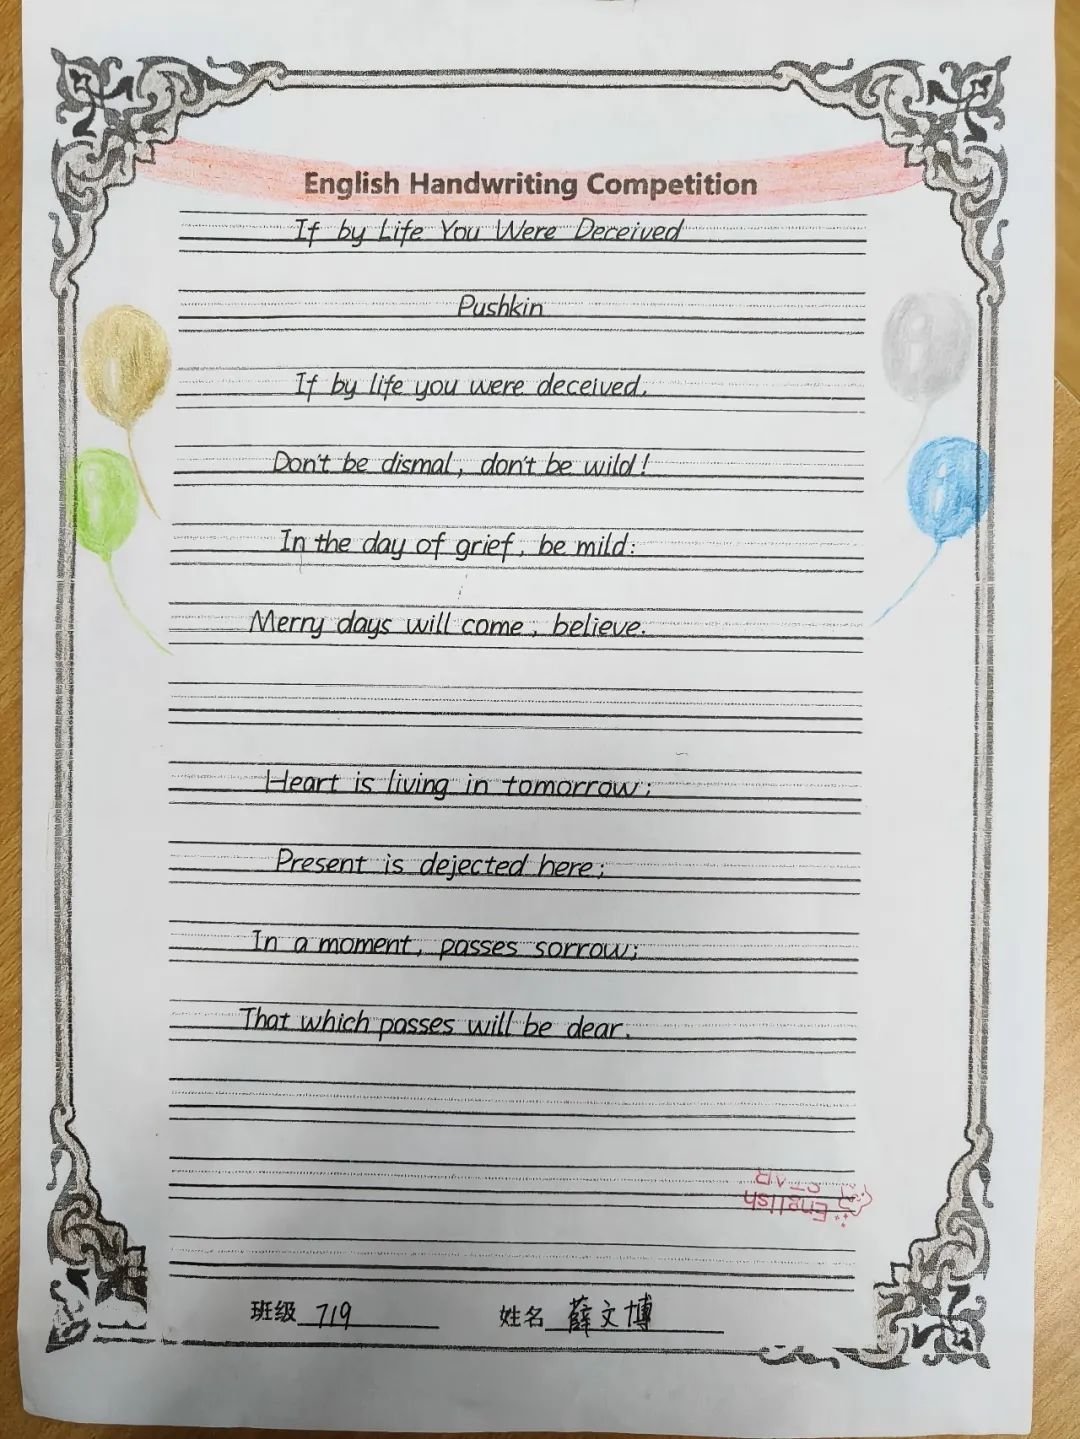 English Handwriting Competition
If by Life You Were Deceived
Pushkin
If by life you were deceived,
Don't be dismal, don't be wild!
In the day of grief, be mild:
Merry days will come, believe.
Heart is living in tomorrow;
Present is dejected here;
In a moment, passes sorrow;
That which passes will be dear.
English
STAR
班级 719 姓名 薛文博